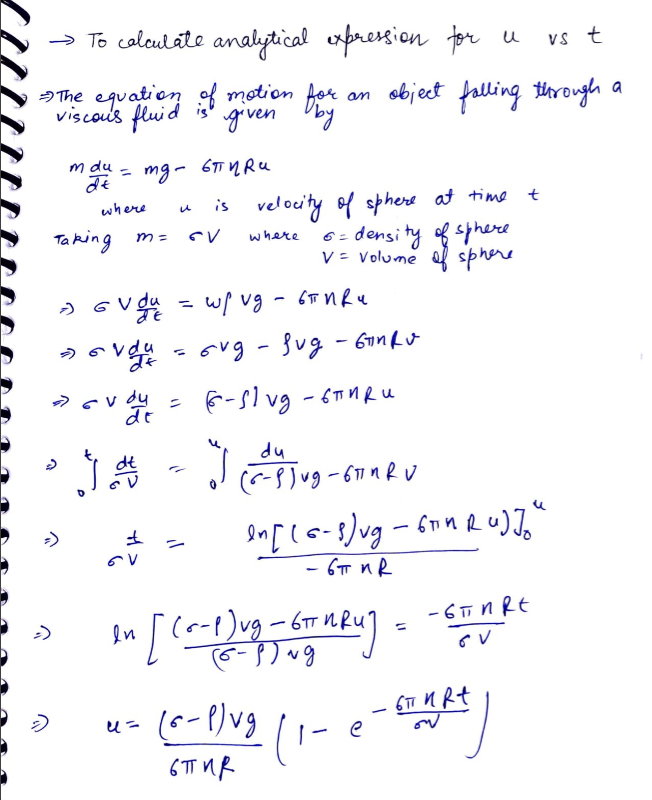 → To calculate analytical expression for u vs t
⇒ The equation of motion for an object falling through a
viscous fluid is given by
m du/dt = mg - 6πηRu
where u is velocity of sphere at time t
Taking m = σV where σ = density of sphere
V = Volume of sphere
⇒ σV du/dt = Vg - 6πηRu
⇒ σV du/dt = σVg - ρVg - 6πηRv
⇒ σV du/dt = (σ-ρ)Vg - 6πηRu
⇒ ₀∫ᵗ dt/σV = ₀∫ᵘ du/((σ-ρ)Vg - 6πηRv)
⇒ t/σV = ln[(σ-ρ)Vg - 6πηRu)]₀ᵘ / -6πηR
⇒ ln[((σ-ρ)Vg - 6πηRu)/((σ-ρ)Vg)] = -6πηRt/σV
⇒ u = (σ-ρ)Vg/6πηR (1 - e^(-6πηRt/σV))